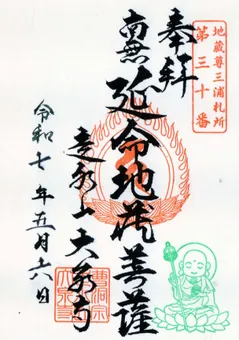 地蔵尊三浦札所
第三十番
奉拝
南無延命地蔵菩薩
大泉寺
令和七年五月十六日
曹洞宗
大泉寺